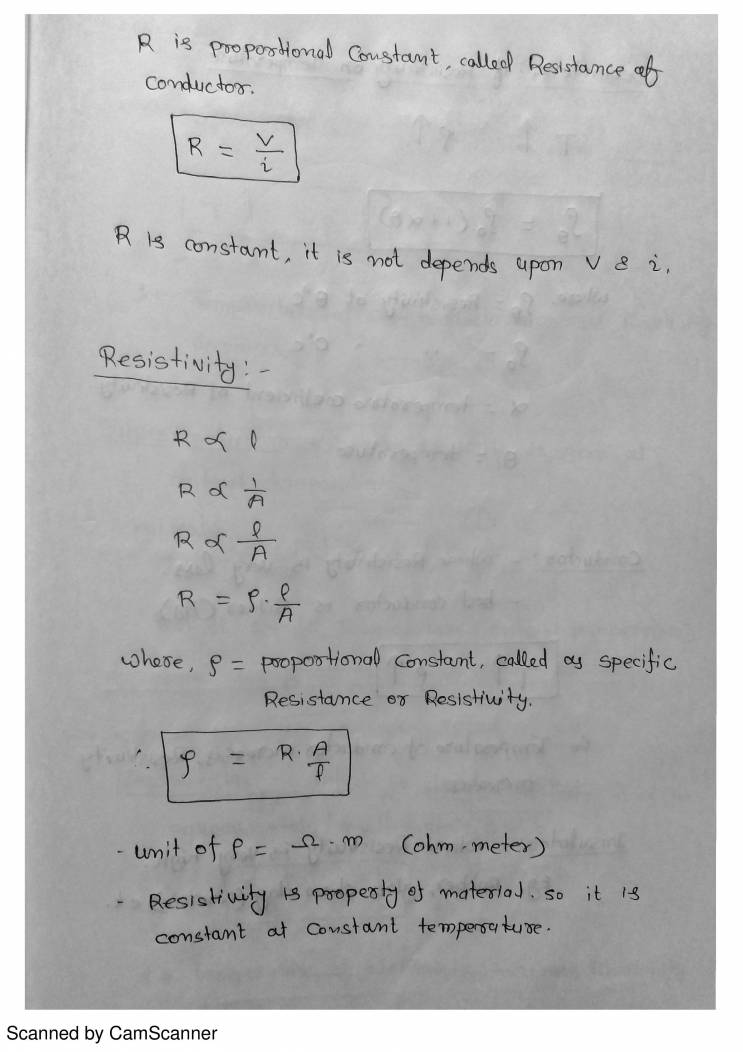 R is proportional Constant, called Resistance of
conductor.
R = V/i
R is constant, it is not depends upon V & i.
Resistivity :-
R ∝ l
R ∝ 1/A
R ∝ l/A
R = ρ · l/A
where, ρ = proportional constant, called as specific
Resistance or Resistivity.
∴ ρ = R · A/l
- unit of ρ = Ω · m (ohm-meter)
- Resistivity is property of material. so it is
constant at constant temperature.
Scanned by CamScanner